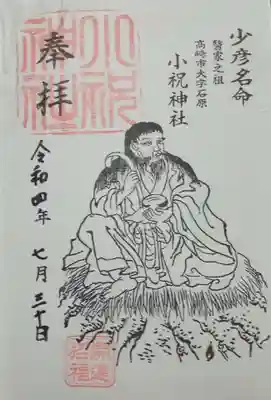 少彦名命
醫家之祖
高崎市大字石原
小祝神社
奉拝
小祝
神社
令和四年 七月三十日
開運
招福